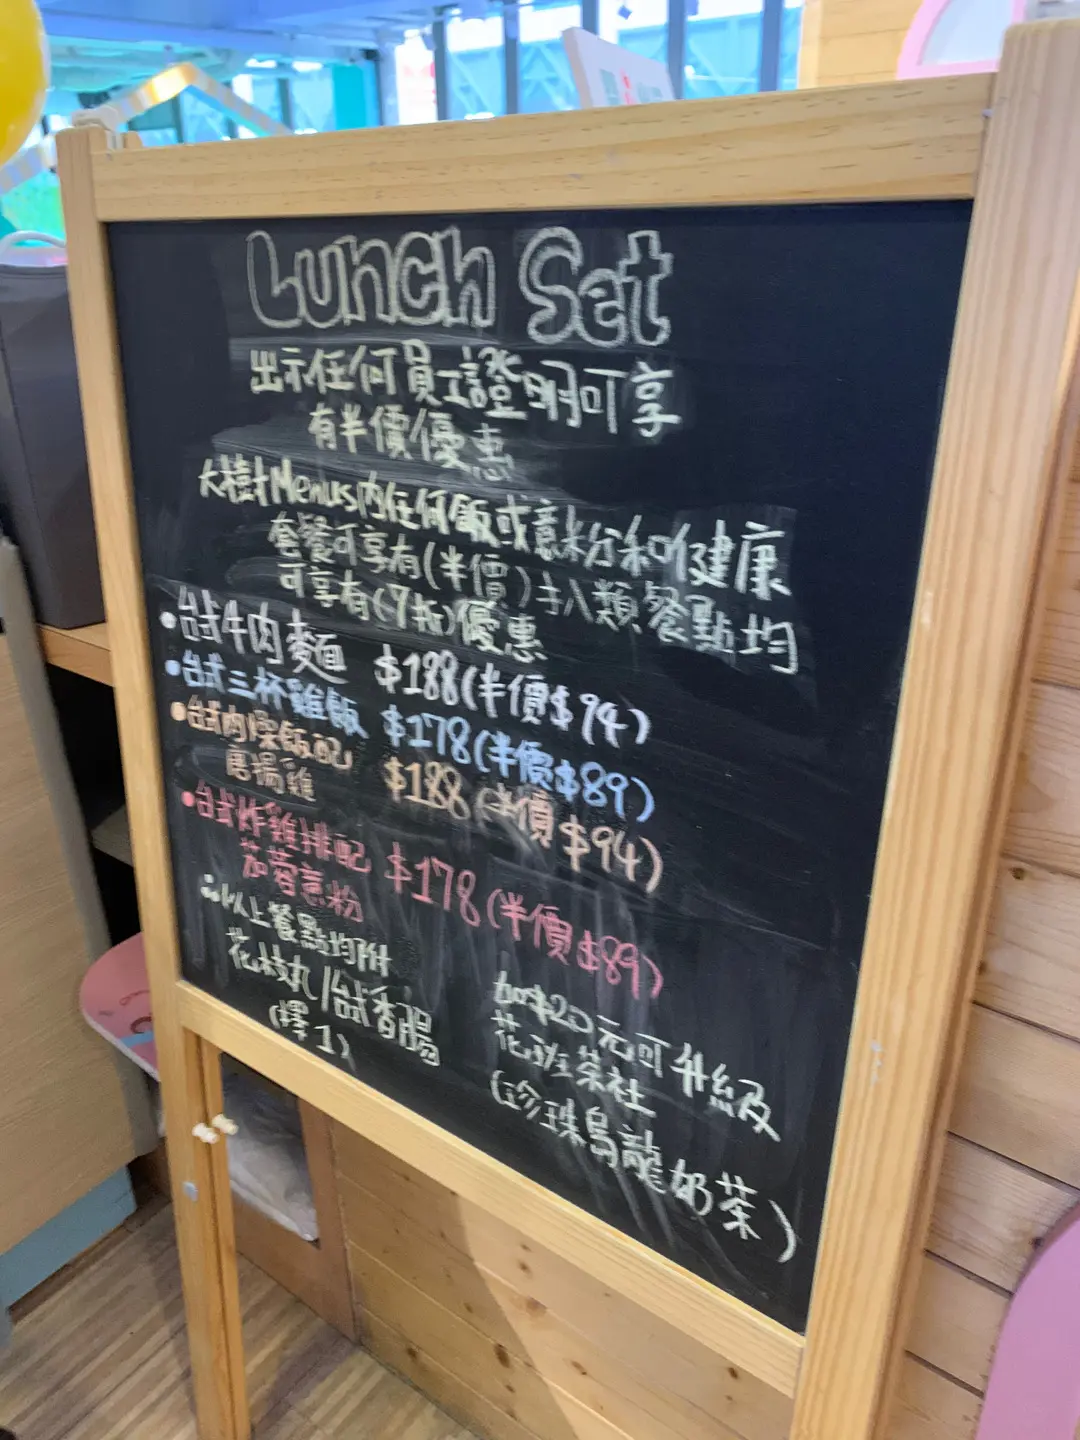 Lunch Set
出示任何員工證明可享
有半價優惠
大樹Menus內任何飯或意粉和健康
套餐可享有(半價)其他類餐點均
可享有(9折)優惠
•台式牛肉麵 $188(半價$94)
•台式三杯雞飯 $178(半價$89)
•台式肉燥飯配
唐揚雞 $188(半價$94)
•台式炸雞排配
茄蓉意粉 $178(半價$89)
以上餐點均附
花枝丸/台式香腸
(擇1)
加$20元可升級
花班茶社
(珍珠烏龍奶茶)